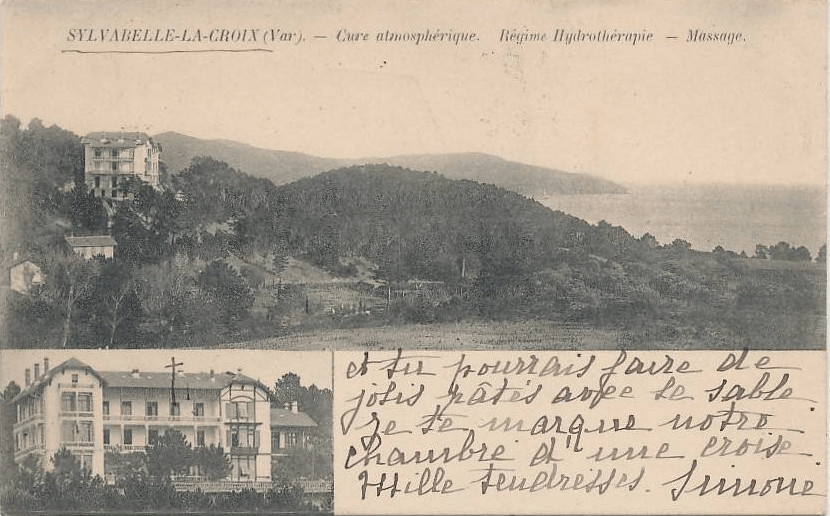 SYLVABELLE-LA-CROIX (Var). — Cure atmosphérique. Régime Hydrothérapie — Massage.
et tu pourrais faire de
jolis pâtés avec le sable
je te marque notre
chambre d'une croise
Mille tendresses. Simone